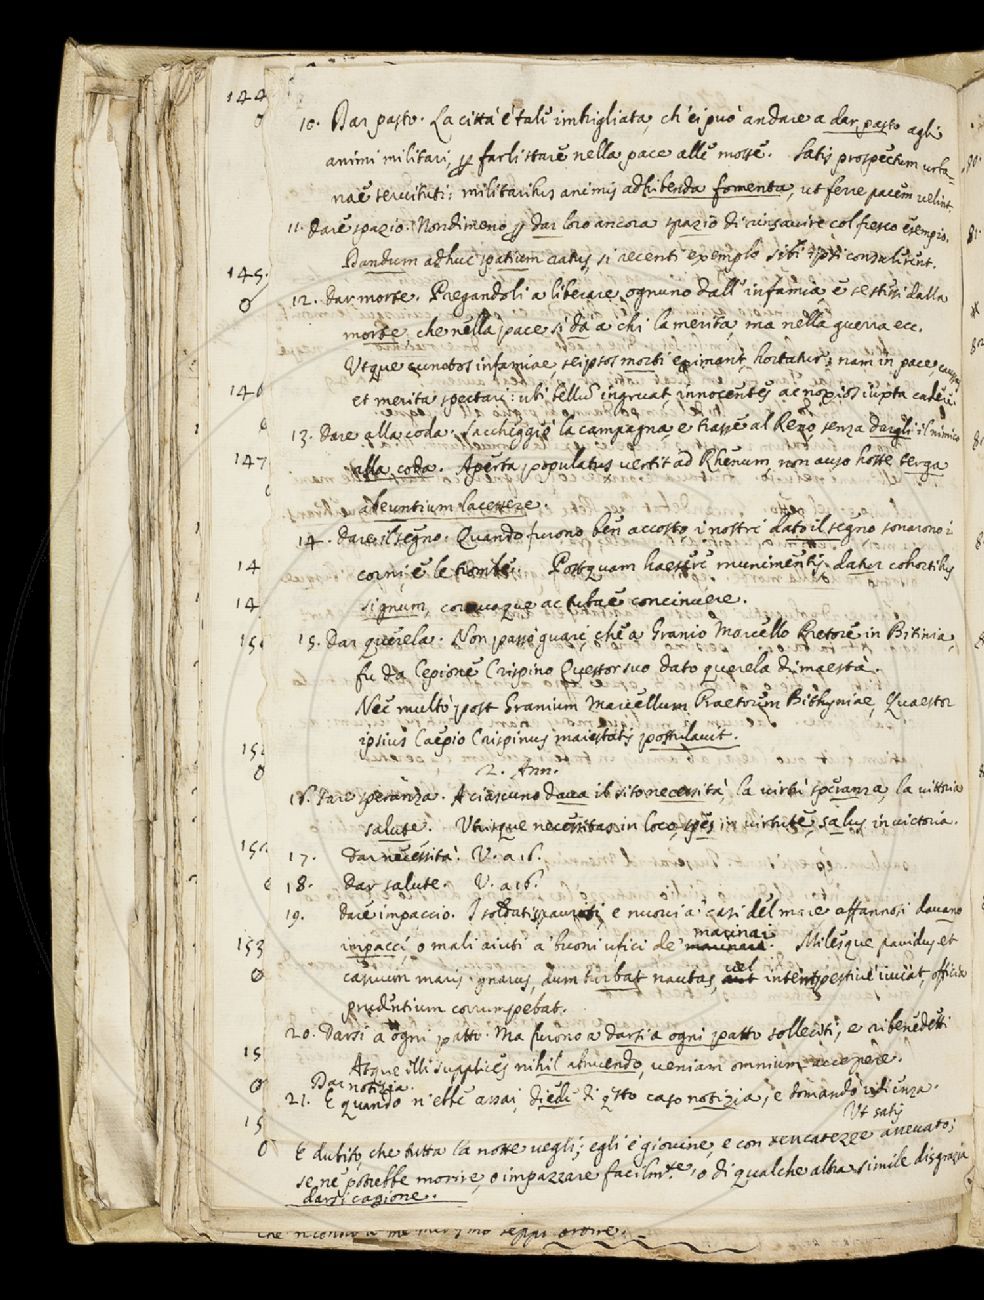 144
10. Dar pasto. La città è tal imbrigliata, ch'ei può andare a dar pasto agli
animi militari, farli stare nella pace alle mosse. Satis prospectum urba-
nae servituti: militaribus animis adhibenda fomenta, ut ferre pacem velint.
11. Dare spazio. Nondimeno dar loro ancora spazio di rinsavire col fresco esempio.
Dandum adhuc spatium ratus, si recenti exemplo sibi ipsi consulerent.
145.
12. Dar morte. Pregandoli a liberare ognuno dall'infamia, e se stessi dalla
morte, che nella pace si da a chi la merita, ma nella guerra ecc.
Utque cunctos infamiae, seipsos morti eximant, hortatur; nam in pace
146
et merita spectari: ubi bellu ingruat, innocentes ac noxios iuxta cadere.
13. Dare alla coda. Saccheggiò la campagna, e trasse al Reno senza dargli il nimico
147
alla coda. Aperta populatus vertit ad Rhenum, non auso hoste terga
abeuntium lacessere.
14. Dare il segno. Quando furono ben accosto i nostri dato il segno sonarono i
14
corni, e le trombe. Postquam haesere munimentis, datur cohortibus
14
signum, cornuaque ac tubae concinuere.
15. Dar querela. Non passò guari, che a Granio Marcello Pretore in Bitinia,
fu da Cepione Crispino Questor suo dato querela di maestà.
Nec multo post Granium Marcellum Praetorem Bithyniae, Quaestor
ipsius Caepio Crispinus maiestatis postulavit.
2. Ann.
16. Dare speranza. A ciascuno dava il sito necessità, la virtù speranza, la vittoria
salute. Utrisque necessitas in loco, spes in virtute, salus in victoria.
17. Dar necessità. V. a 16.
18. Dar salute. V. a 16.
19. Dare impaccio. I soldati paurosi, e nuovi a' casi del mare affannosi davano
marinai
153
impacci, o mali aiuti a' buoni ufici de' Milesque pavidus et
vel
casuum maris ignarus, dum turbat nautas, intempestive iuvat, officia
prudentium corrumpebat.
20. Darsi a ogni patto. Ma furono a darsi a ogni patto solleciti, e ribenedetti
15
Atque illi supplices nihil abnuendo, veniam omnium accepere.
Dar notizia.
21. E quando n'ebbe assai, diede di qsto caso notizia, e domandò udienza.
15
Ut satis
E dubito, che tutta la notte vegli; egli è giovine, e con tenerezze allevato;
se ne potrebbe morire, o impazzare facilm.te, o di qualche altra simile disgrazia
darsi cagione.